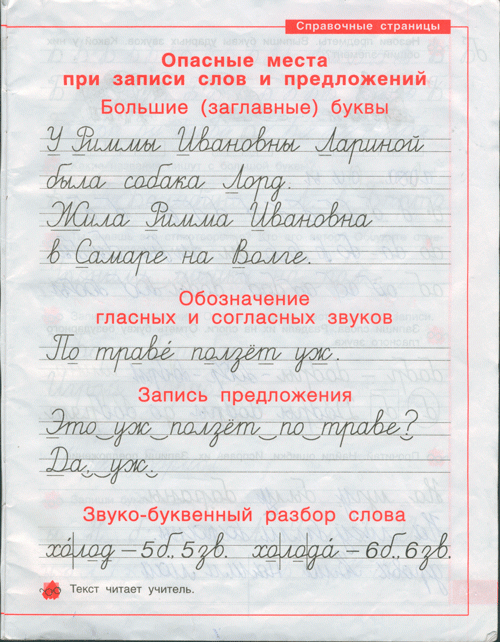 Справочные страницы
Опасные места
при записи слов и предложений
Большие (заглавные) буквы
У Риммы Ивановны Лариной
была собака Лорд.
Жила Римма Ивановна
в Самаре на Волге.
Обозначение
гласных и согласных звуков
По траве́ ползёт уж.
Запись предложения
Это уж ползёт по траве?
Да, уж.
Звуко-буквенный разбор слова
хо́|лод – 5 б., 5 зв. хо|ло|да́ – 6 б., 6 зв.
Текст читает учитель.